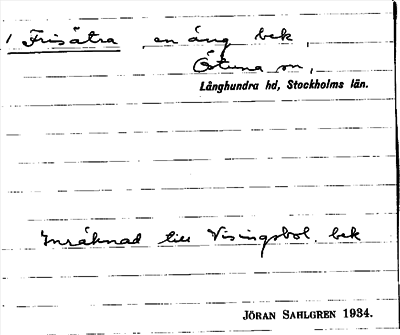 1 Frisätra en äng bek.
Östuna sn,
Långhundra hd, Stockholms län.
Inräknad till Visingsbol. bek
JÖRAN SAHLGREN 1934.